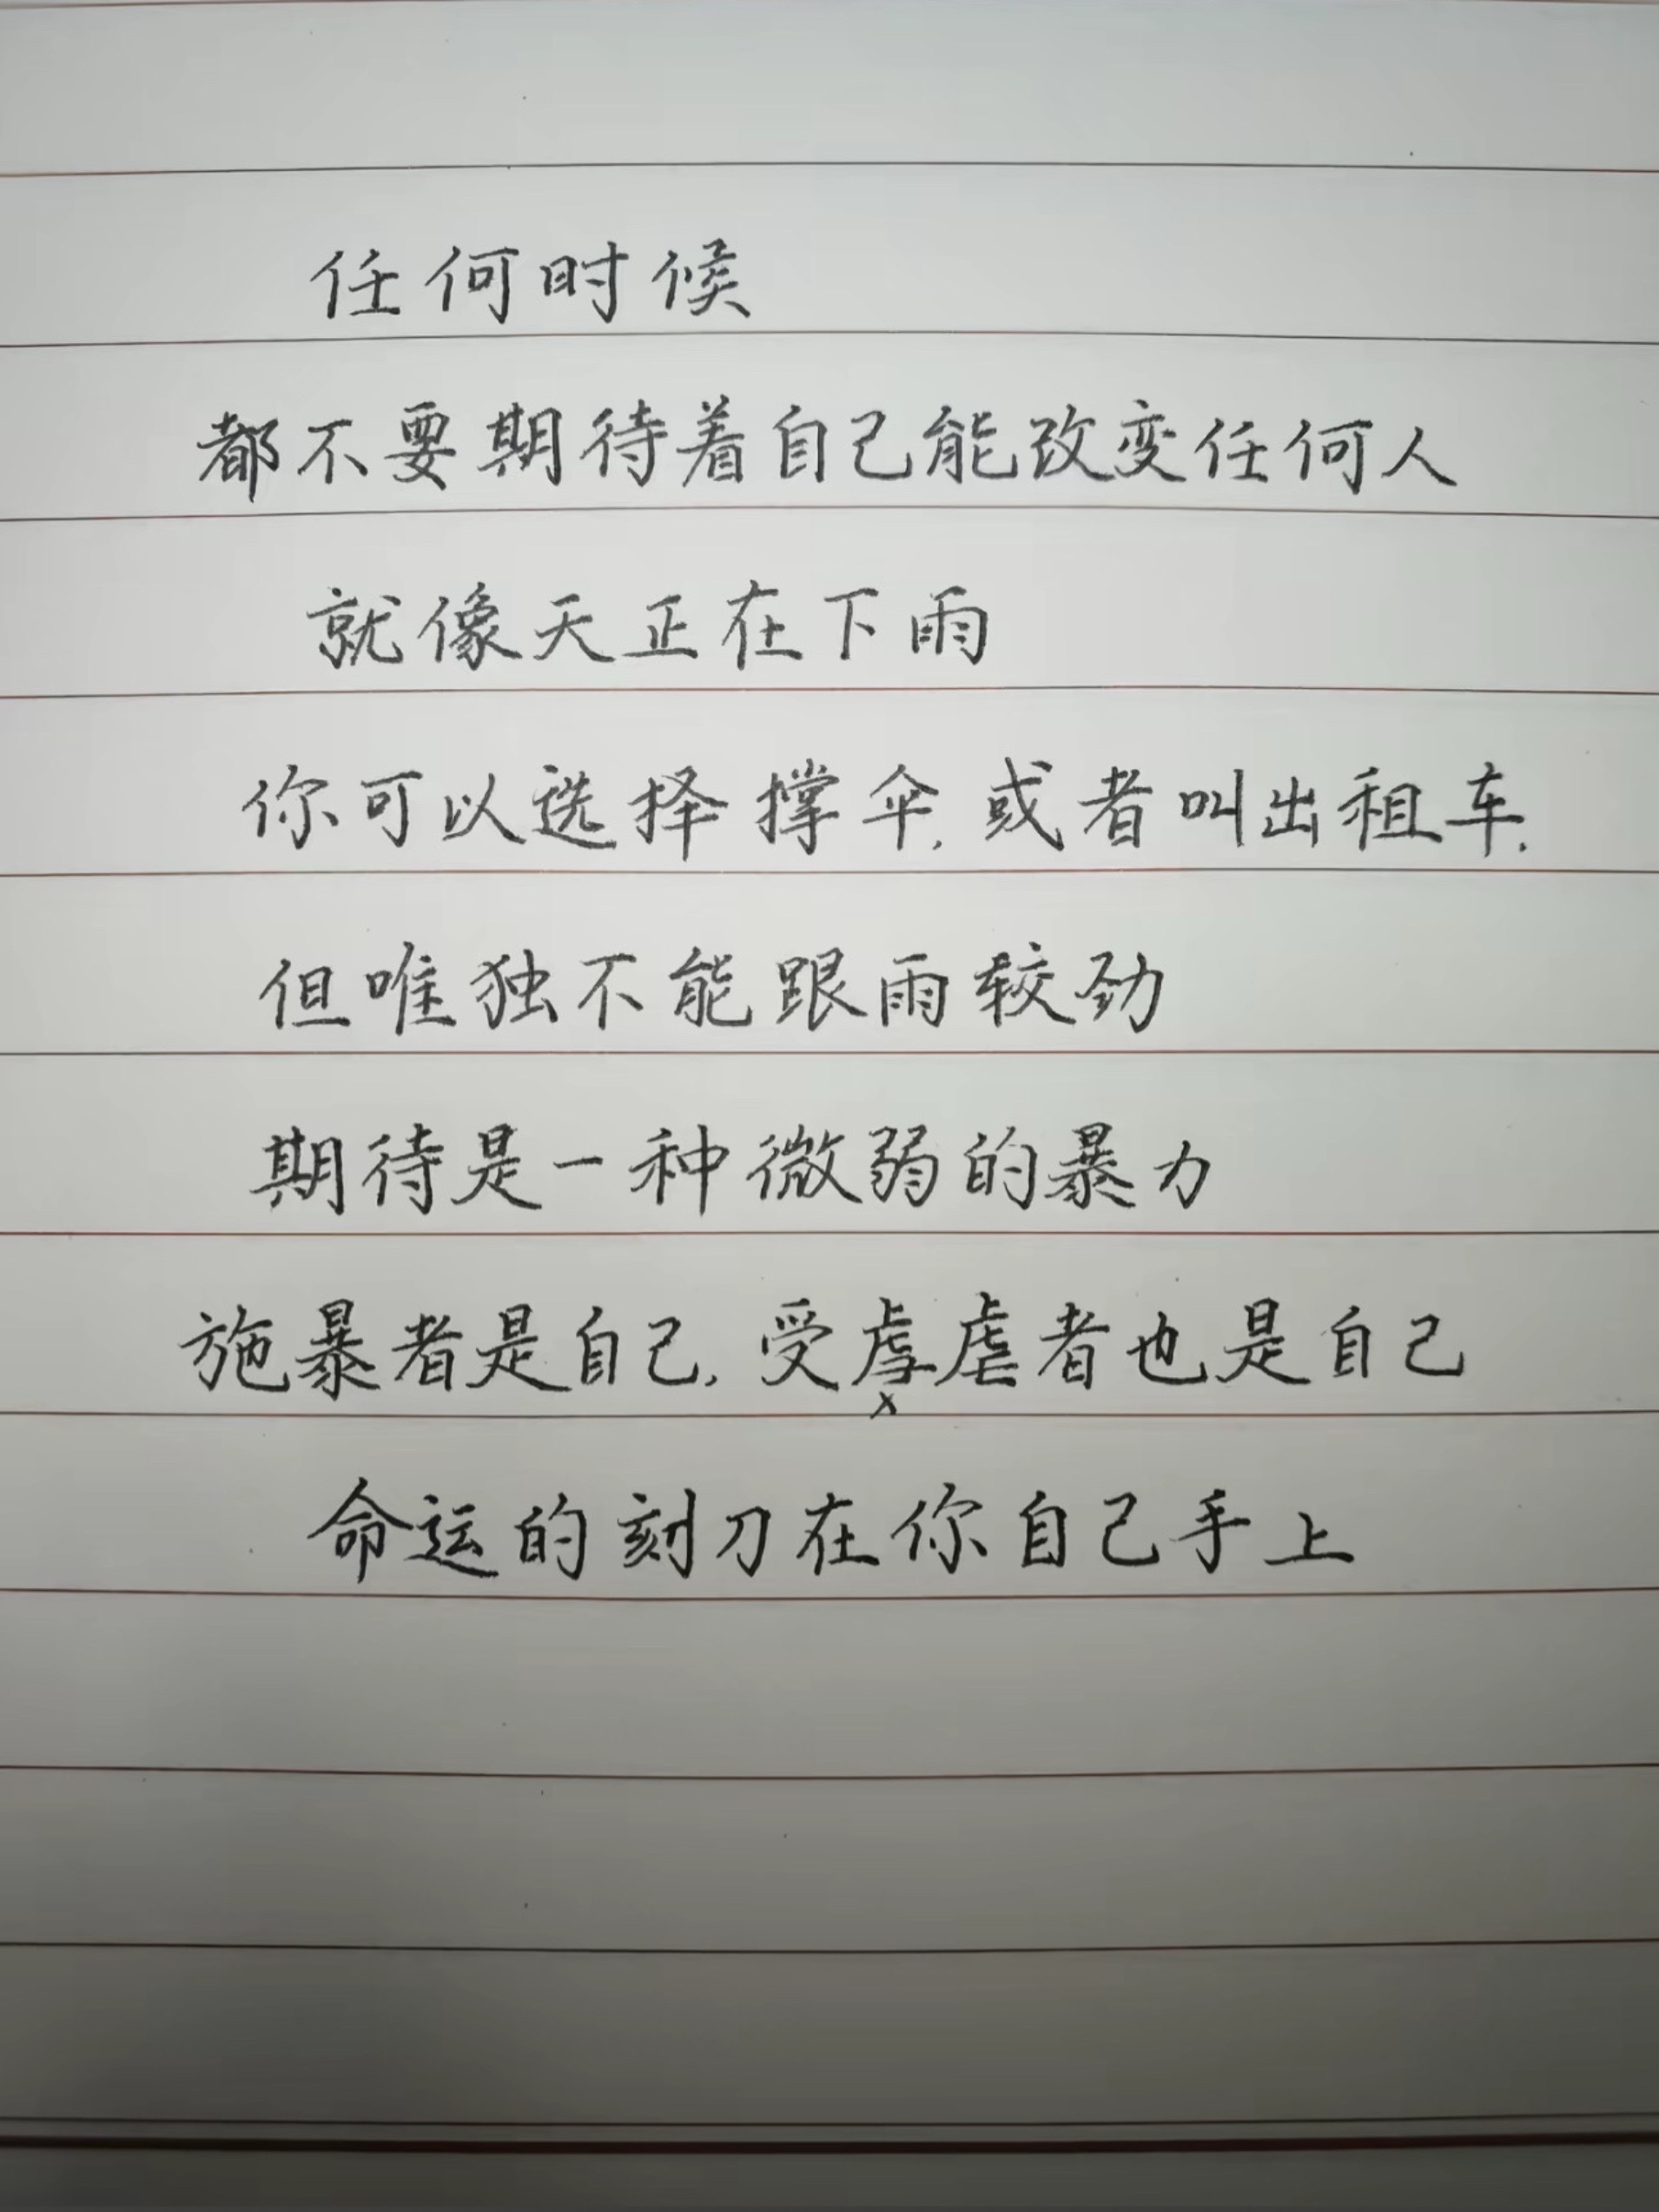 任何时候
都不要期待着自己能改变任何人
就像天正在下雨
你可以选择撑伞,或者叫出租车.
但唯独不能跟雨较劲
期待是一种微弱的暴力
施暴者是自己,受虐者也是自己
命运的刻刀在你自己手上